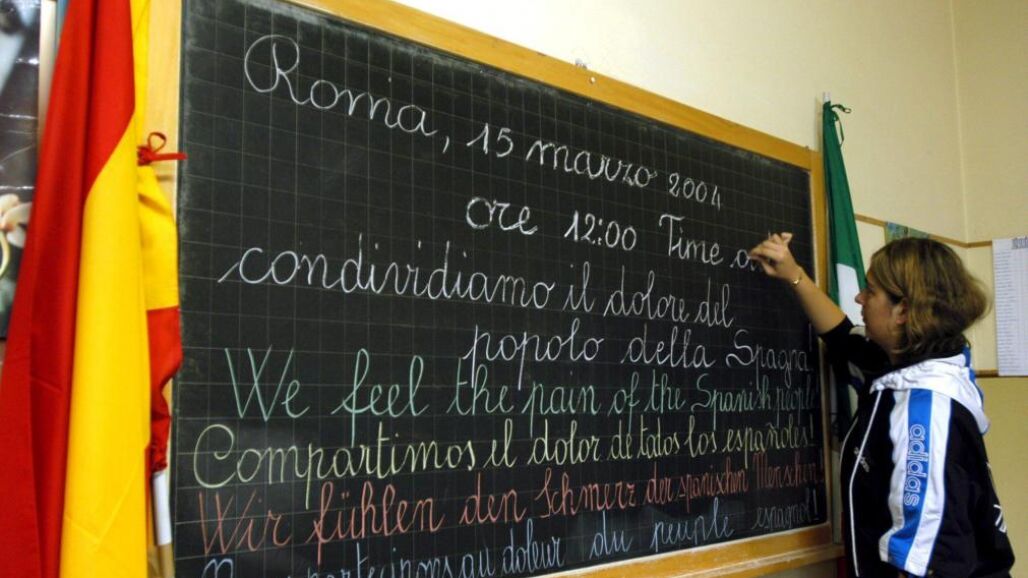 Roma, 15 marzo 2004
ore 12:00 Time
condividiamo il dolore del
popolo della Spagna
We feel the pain of the Spanish people
Compartimos el dolor de todos los españoles!
Wir fühlen den Schmerz der spanischen Menschen!
au doleur du peuple espagnol!
adidas